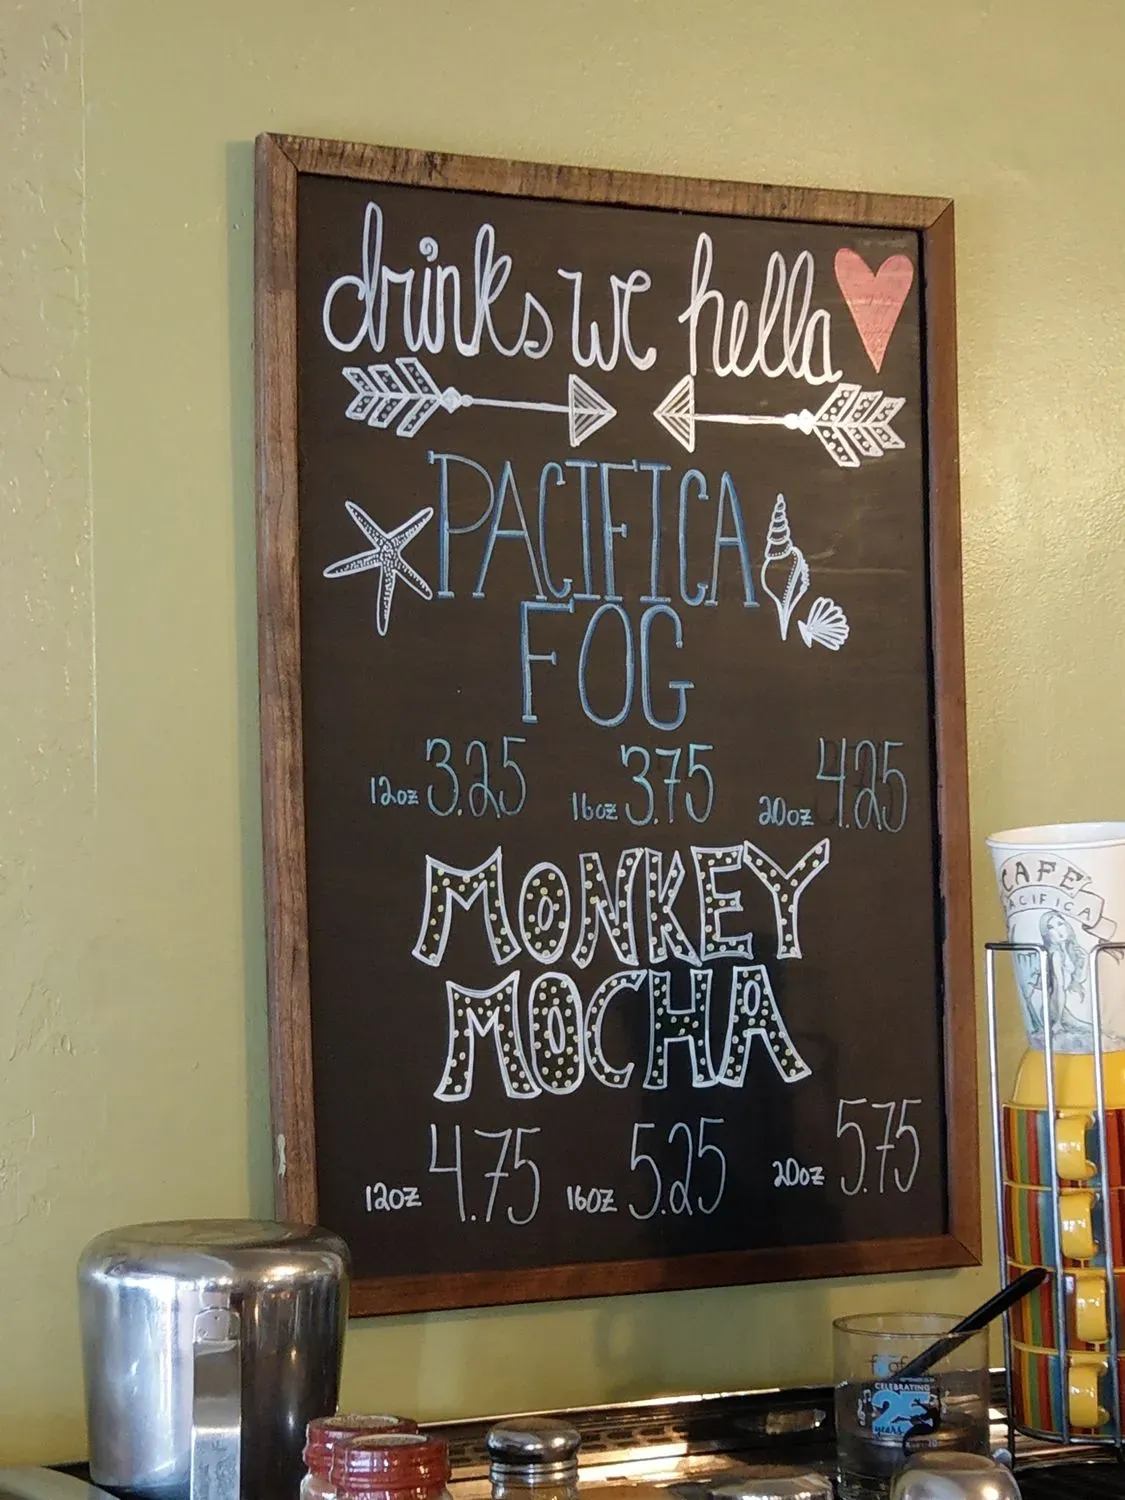 drinks we hella
PACIFICA
FOG
12oz 3.25 16oz 3.75 20oz 4.25
MONKEY
MOCHA
12oz 4.75 16oz 5.25 20oz 5.75
CAFE
PACIFICA
CELEBRATING
25
years